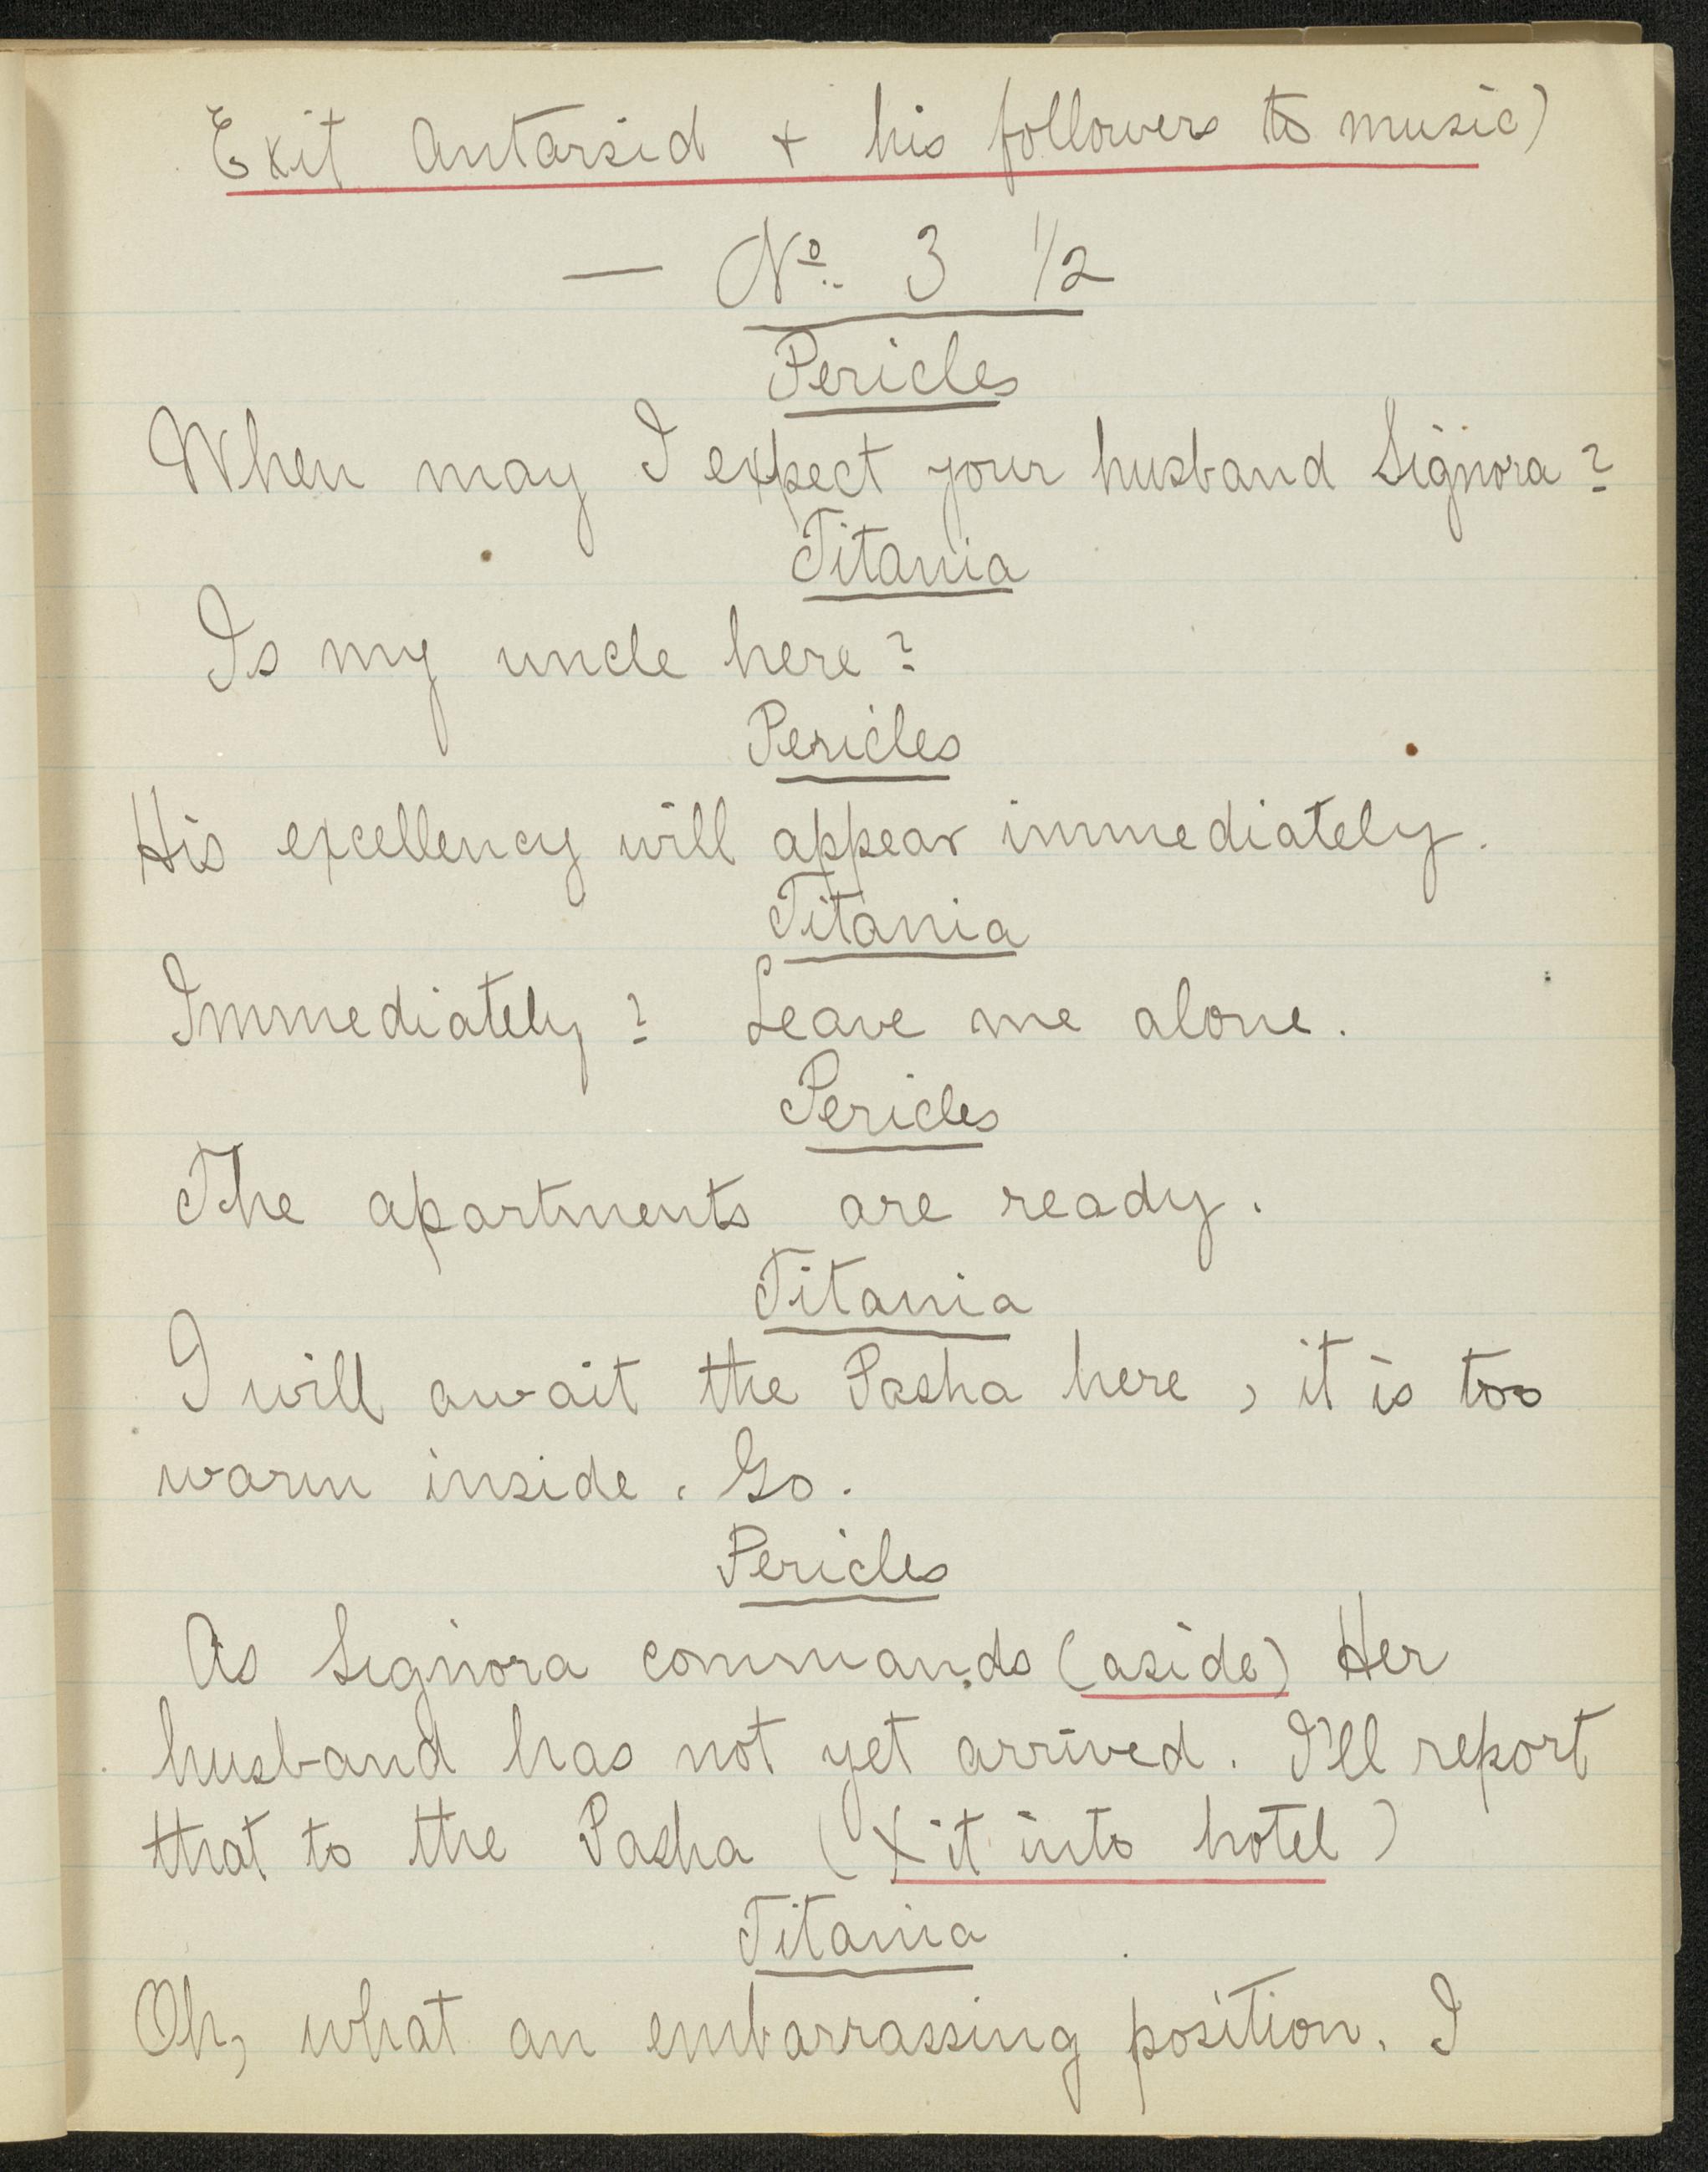 Exit Antarsid + his followers to music)
— No. 3 1/2
Pericles
When may I expect your husband Signora?
Titania
Is my uncle here?
Pericles
His excellency will appear immediately.
Titania
Immediately? Leave me alone.
Pericles
The apartments are ready.
Titania
I will await the Pasha here, it is too
warm inside. Go.
Pericles
As Signora commands (aside) Her
husband has not yet arrived. I'll report
that to the Pasha (Xit into hotel)
Titania
Oh, what an embarrassing position. I